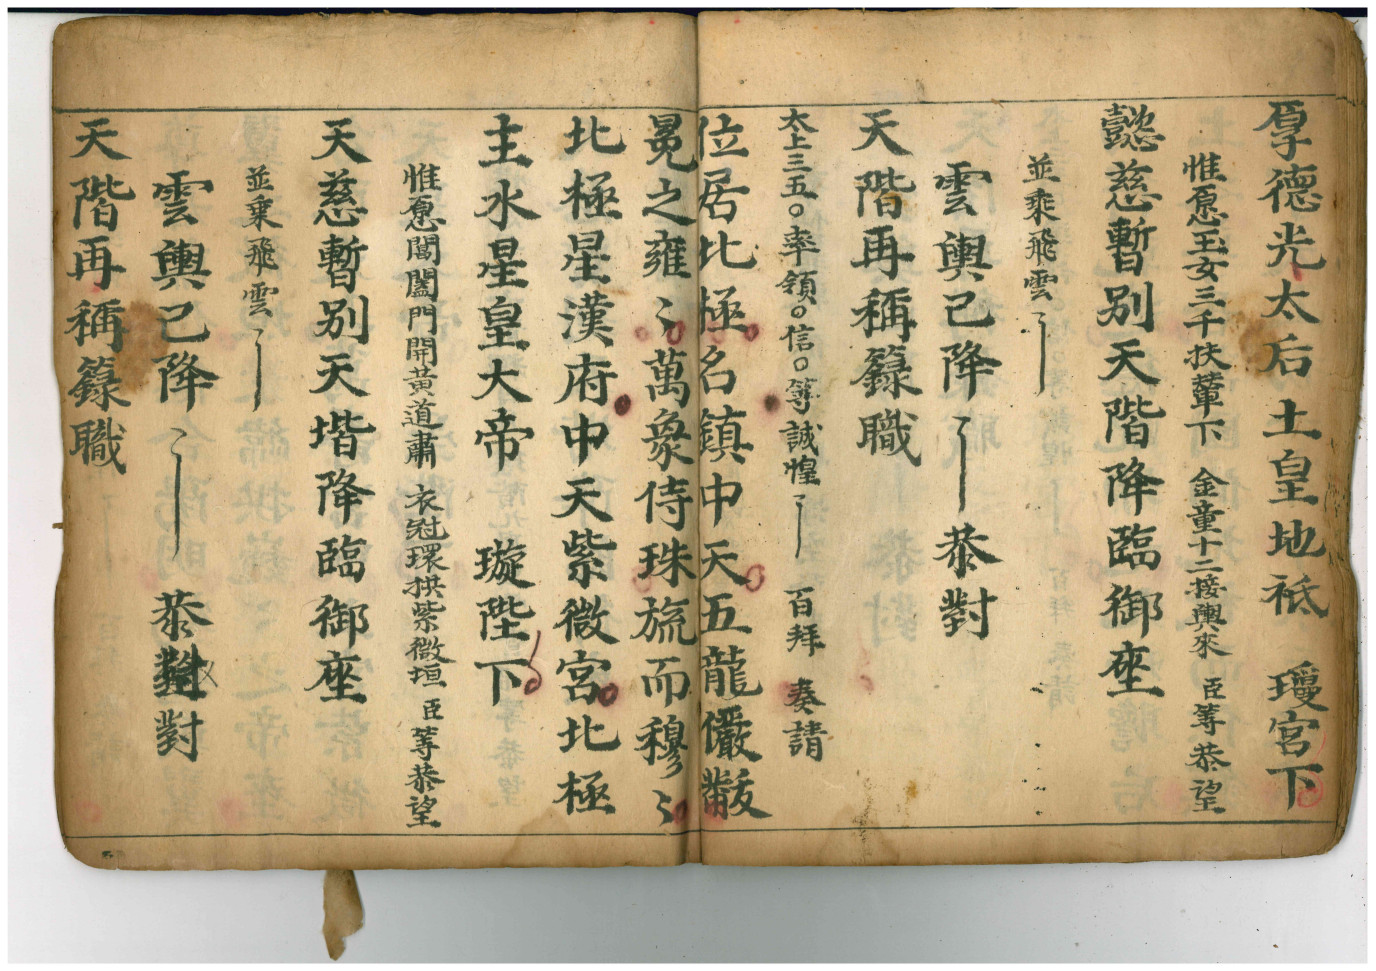 厚德光太后土皇地袛　瓊宮下
惟愿玉女三千扶輦下　金童十二接輿來　臣等恭望
懿慈暫別天階降臨御座
並乘飛雲
雲輿已降　恭對
天階再稱籙職
太上三五○率領○信○等誠惶　百拜　奏請
位居北極名鎮中天五龍儼黻
冕之雍〻萬衆侍珠旒而穆〻
北極星漢府中天紫微宮北極
主水星皇大帝　璇陛下
惟愿閶闔門開黃道肅　衣冠環拱紫微垣　臣等恭望
天慈暫別天堦降臨御座
並乘飛雲
雲輿已降　恭對
天階再稱籙職